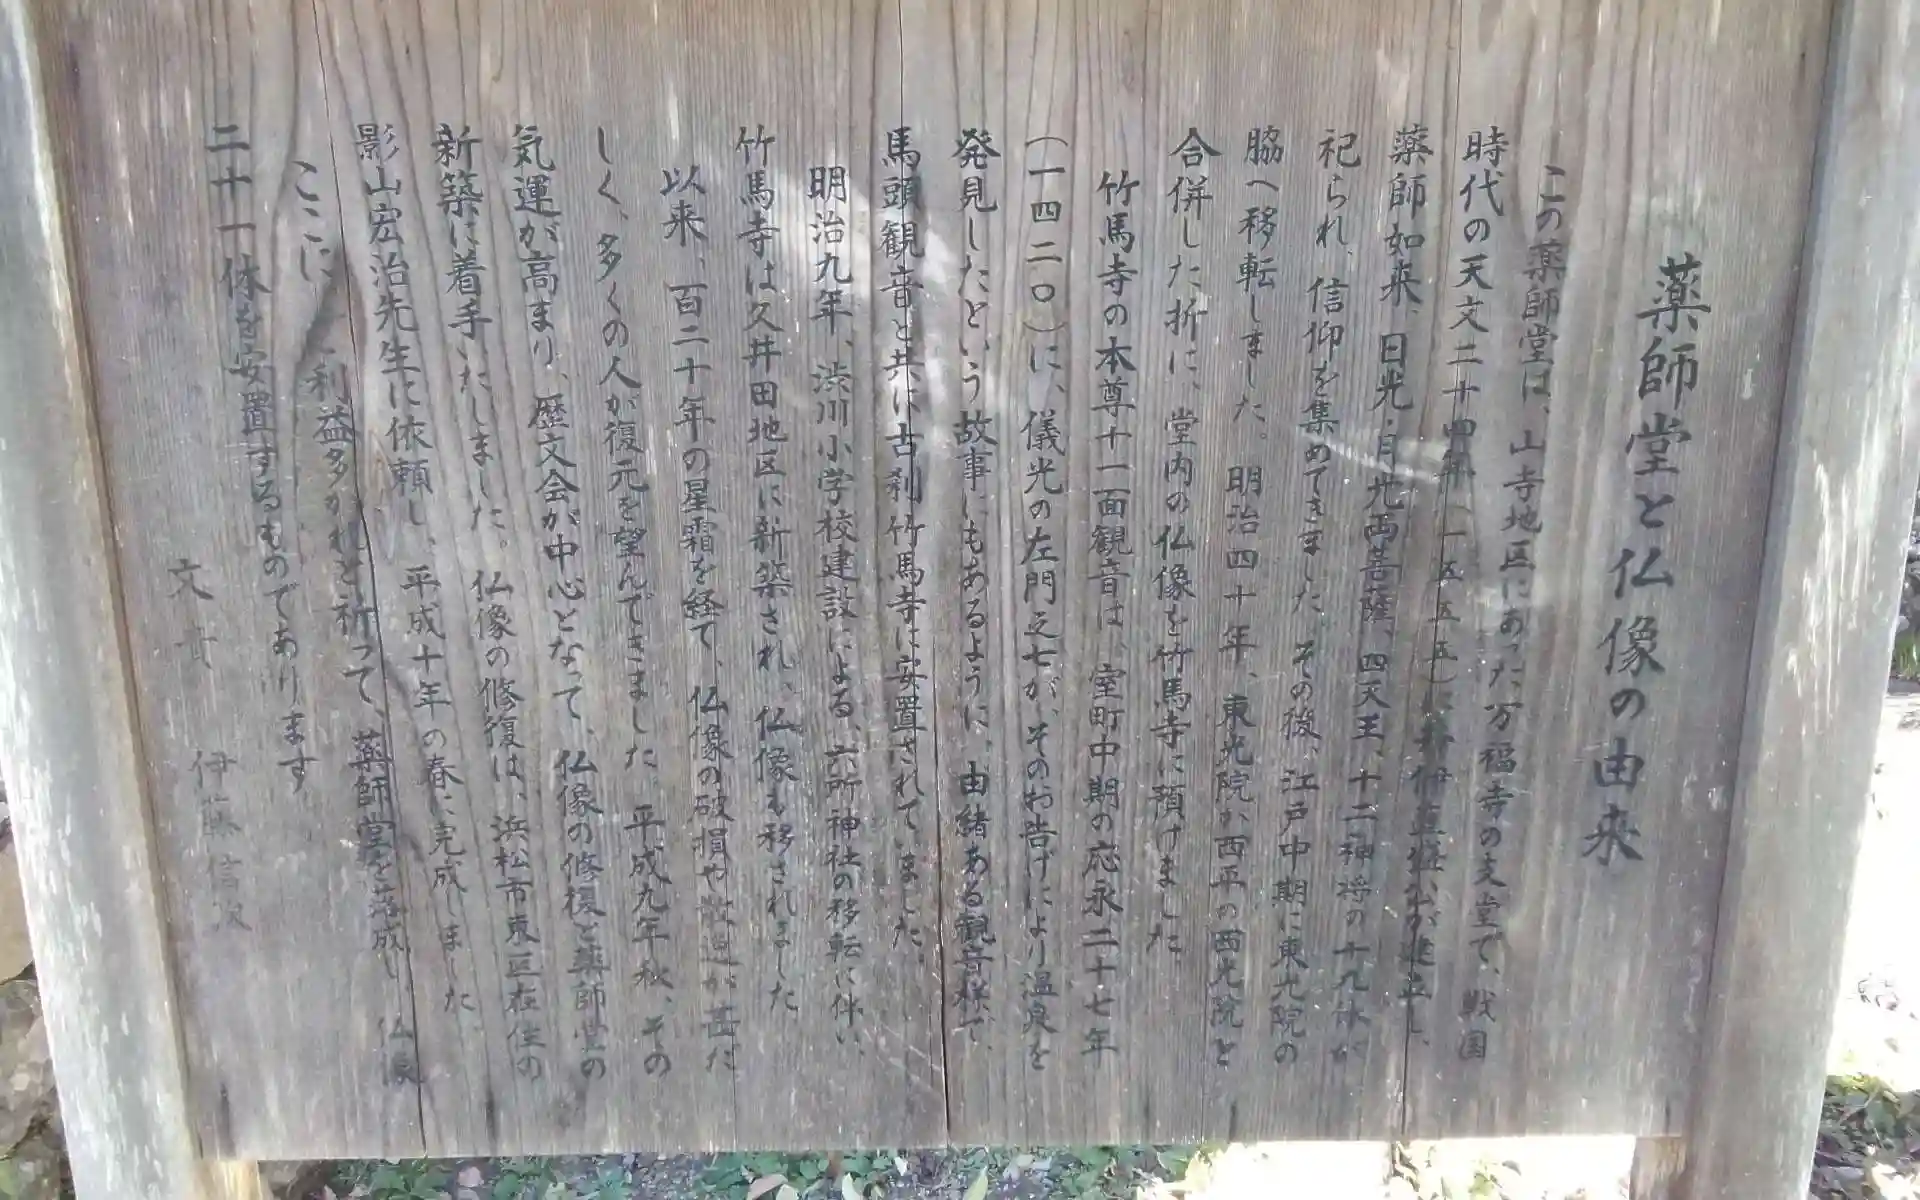 薬師堂と仏像の由来
この薬師堂は、山寺地区にあった万福寺の支堂で、戦国
時代の天文二十四年(一五五五)に井伊直盛公が建立し、
薬師如来、日光・月光両菩薩、四天王、十二神将の十九体が
祀られ、信仰を集めてきました。その後、江戸中期に東光院の
脇へ移転しました。明治四十年、東光院が西平の西光院と
合併した折に、堂内の仏像を竹馬寺に預けました。
竹馬寺の本尊十一面観音は、室町中期の応永二十七年
(一四二〇)に、儀光の左門之七が、そのお告げにより温泉を
発見したという故事にもあるように、由緒ある観音様で、
馬頭観音と共に古刹竹馬寺に安置されていました。
明治九年、渋川小学校建設による、六所神社の移転に伴い、
竹馬寺は久井田地区に新築され、仏像も移されました
以来、百二十年の星霜を経て、仏像の破損や散逸が甚だ
しく、多くの人が復元を望んできました。平成九年秋、その
気運が高まり、歴文会が中心となって、仏像の修復と薬師堂の
新築に着手いたしました。仏像の修復は、浜松市東区在住の
影山宏治先生に依頼し、平成十年の春に完成しました
ここに 利益多かれと祈って、薬師堂を落成し、仏像
二十一体を安置するものであります
文責 伊藤信次